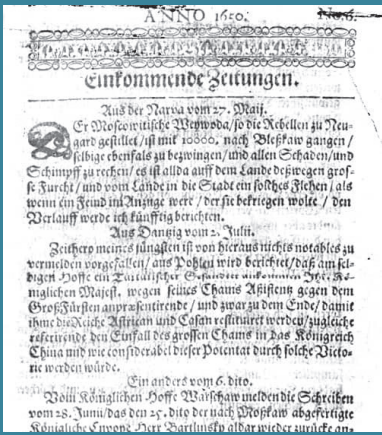 ANNO 1650.
No. 6.
Einkommende Zeitungen.
Aus der Narva vom 27. Maij.
DEr Moscowitische Weywoda/so die Rebellen zu Neu-
gard gestillet/ist mit 10000. nach Bleßkaw gangen/
selbige ebenfals zu bezwingen/und allen Schaden/und
Schimpff zu rechen/es ist allda auff dem Lande deßwegen gros-
se Furcht/und vom Lande in die Stadt ein solches Flehen/als
wenn ein Feind im Anzuge were/der sie bekriegen wolte/den
Verlauff werde ich künfftig berichten.
Aus Danzig vom 2. Julii.
Zeithero meines jüngsten ist von hieraus nichts notables zu
vermelden vorgefallen/aus Pohlen wird berichtet/daß am sel-
bigen Hoffe ein Tartarischer Gesandter ankommen Ihr. Kö-
niglichen Majest. wegen seines Chams Assistentz gegen dem
GroßFürsten anpræsentirende/und zwar zu dem Ende/damit
ihme die Reiche Astrican und Casan restituiret werden/zugleich
referirende den Einfall des grossen Chams in das Königreich
China und wie considerabel dieser Potentat durch solche Victo-
rie werden würde.
Ein anders vom 6. dito.
Vom Königlichen Hoffe Warschaw melden die Schreiben
vom 28. Junii/das den 25. dito der nach Moßkaw abgefertigte
Königliche Envoye Herr Bartlinsky aldar wieder zurücke an-